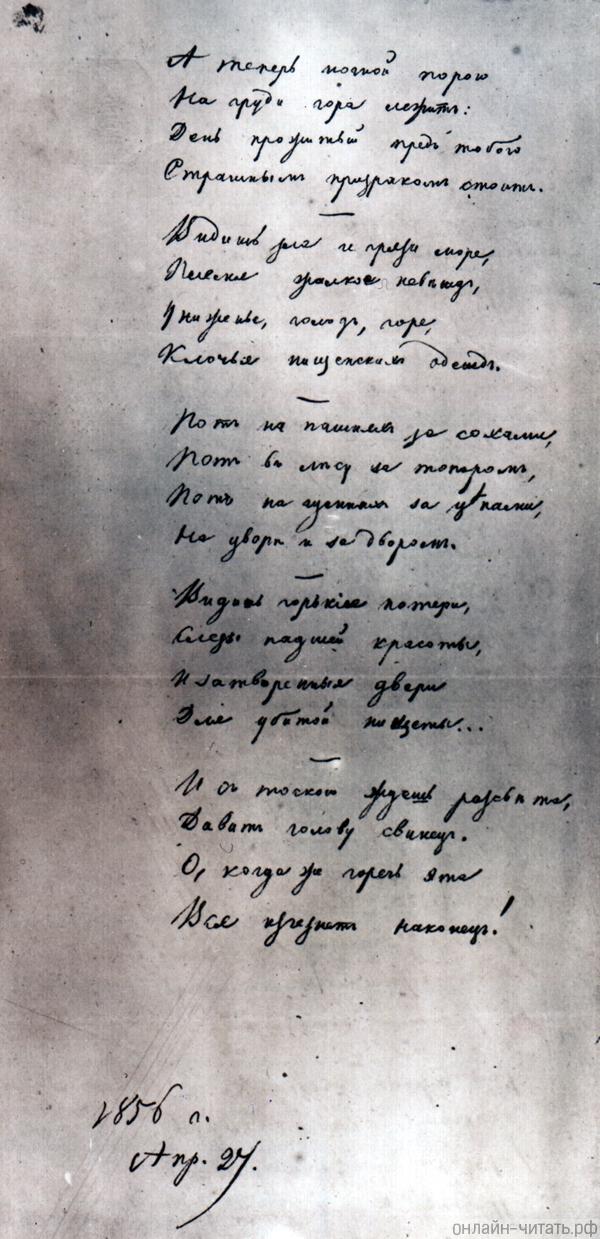 А теперь ночной порою
На груди гора лежитъ:
День прожитый предъ тобою
Страшнымъ призракомъ стоитъ.
Видишь зла и грязи море,
Племя жалкое невѣждъ,
Униженье, голодъ, горе,
Клочья нищенскихъ одеждъ.
Потъ на пашняхъ за сохами,
Потъ въ лѣсу за топоромъ,
Потъ на гумнахъ за цѣпами,
На дворѣ и за дворомъ.
Видишь горькія потери,
Слезы падшей красоты,
И затворенныя двери
Для убитой нищеты...
И съ тоскою ждешь разсвѣта,
Давитъ голову свинецъ.
О, когда же горечь эта
Вся изчезнетъ наконецъ!
1856 г.
Апр. 27.
онлайн-читать.рф